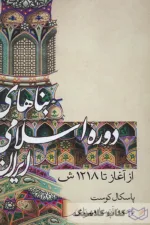 بناهای
دوره اسلامی
ایران
از آغاز تا ۱۲۱۸ ش
پاسکال کوست